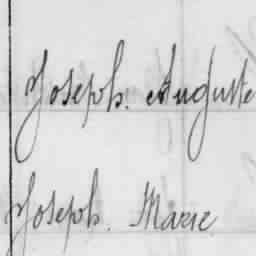 Joseph. Auguste
Joseph. Marie